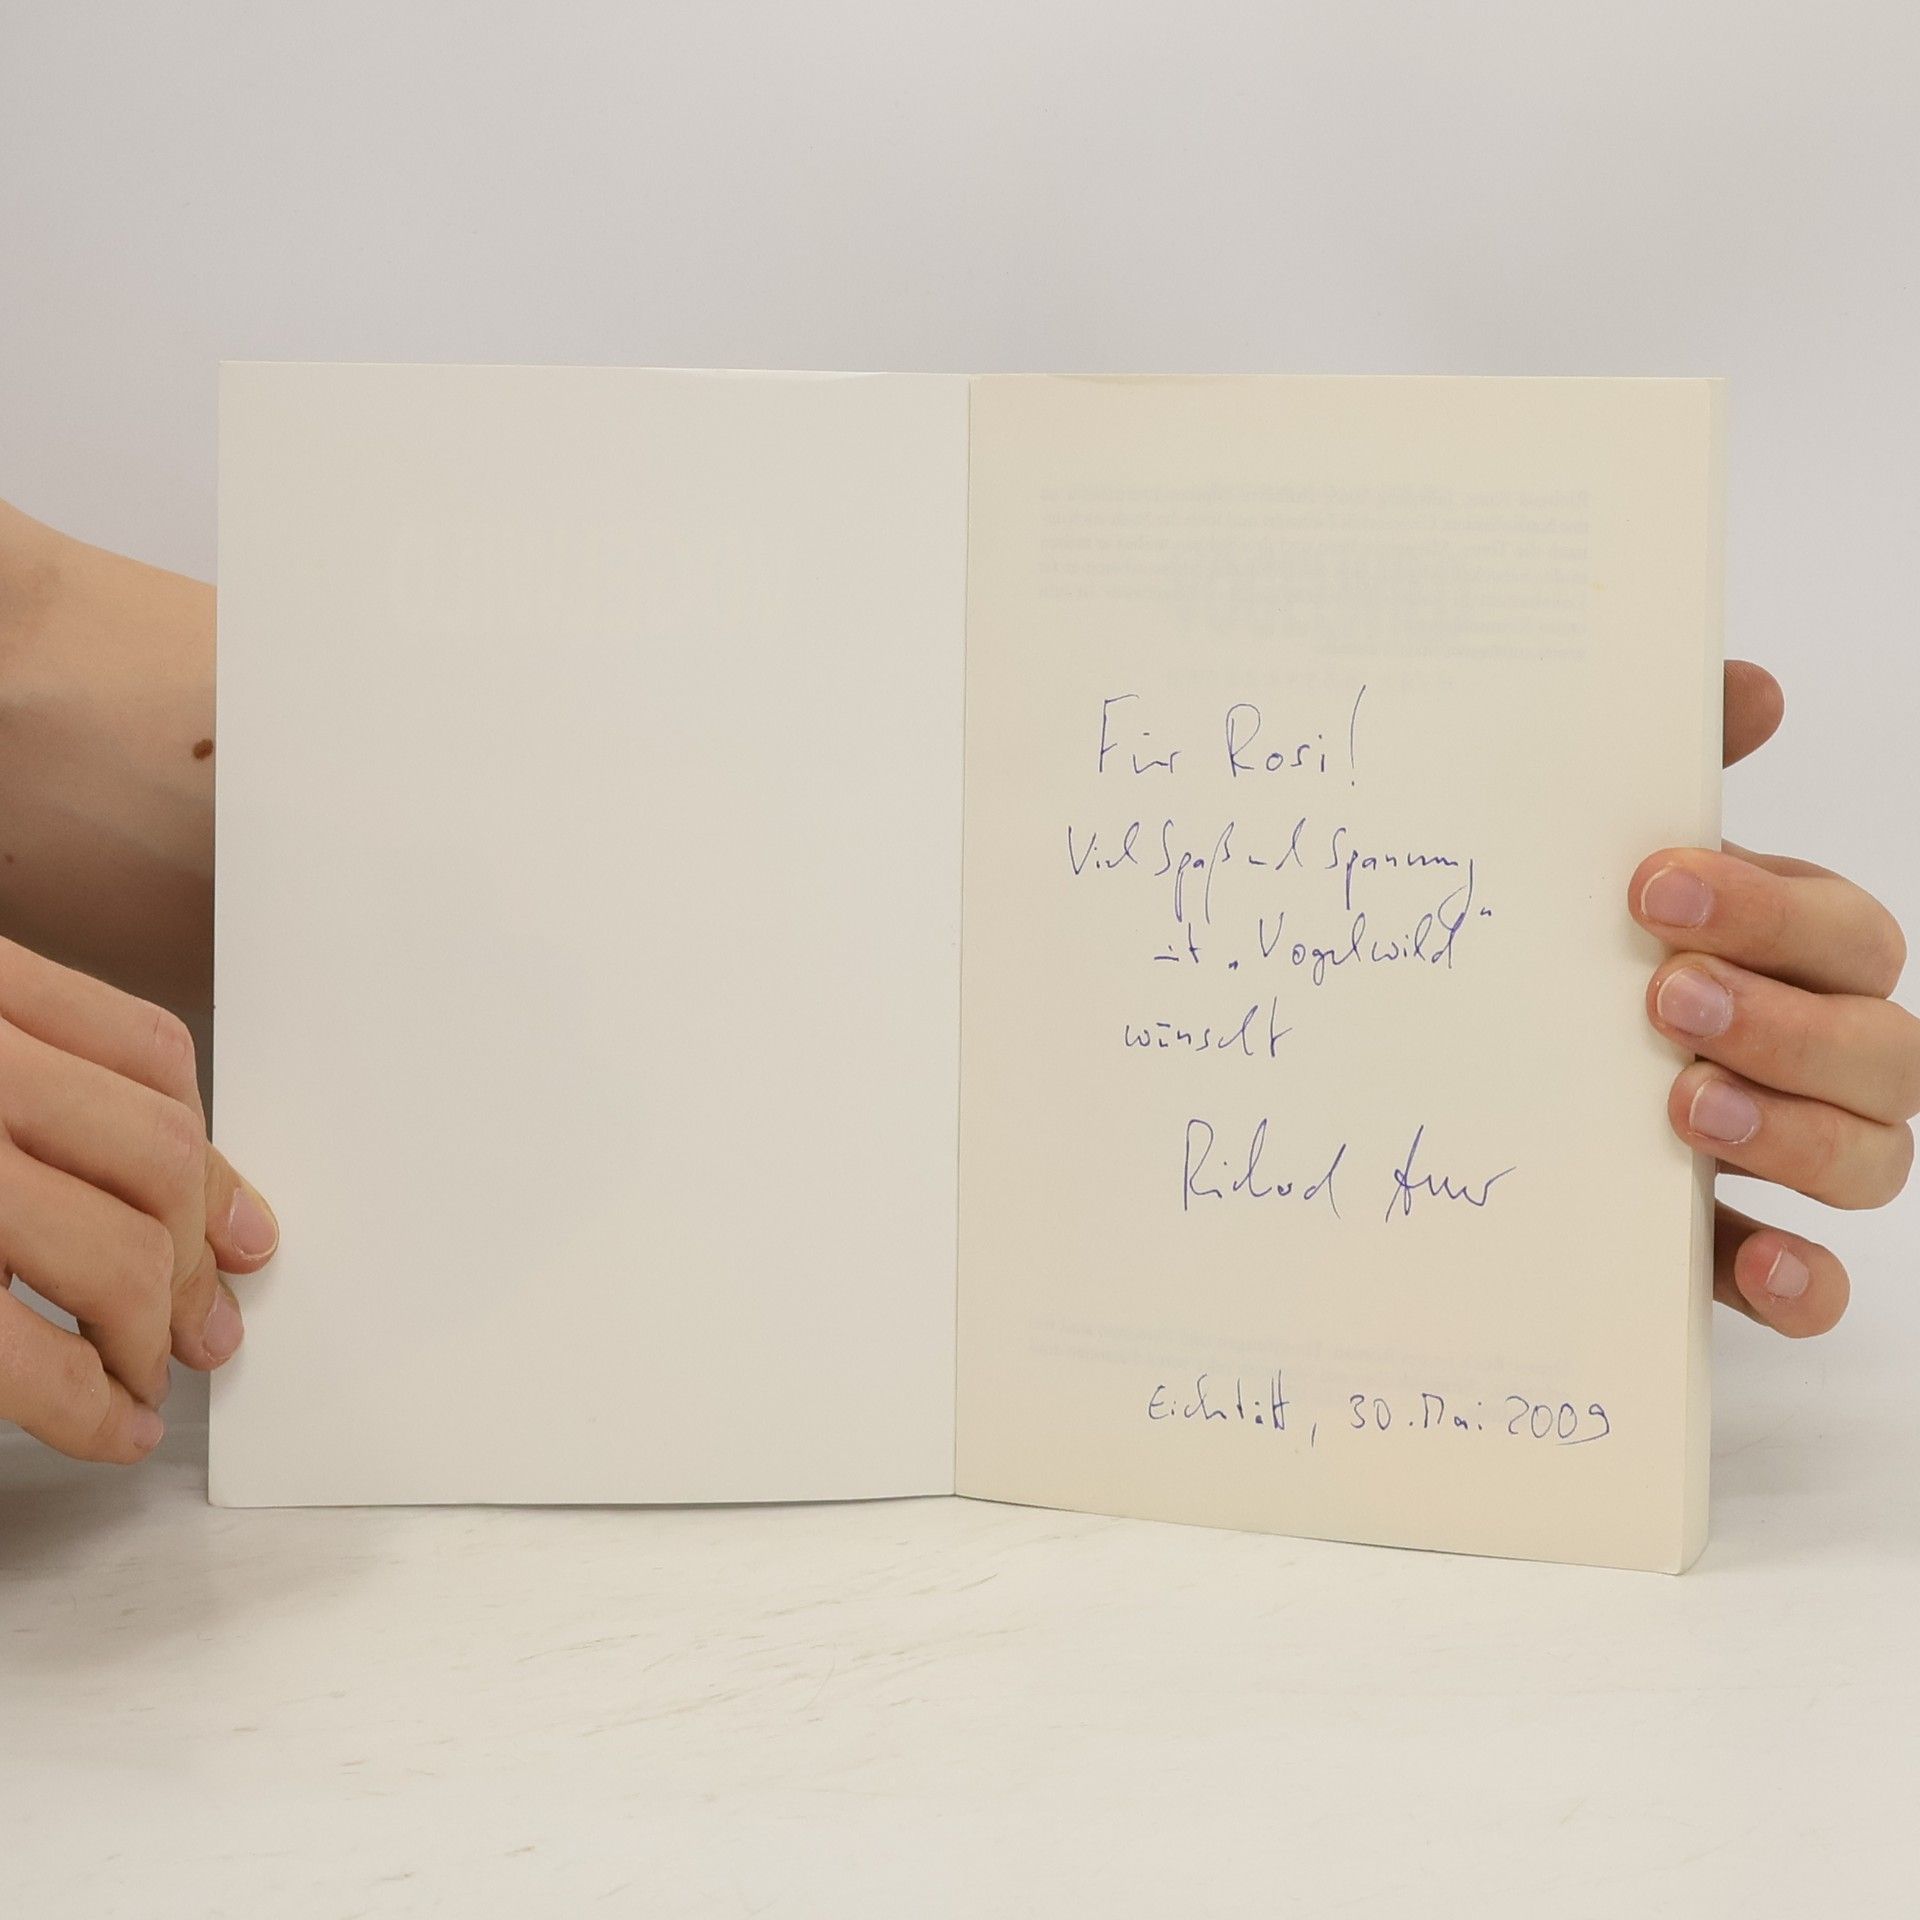 Für Rosi!
Viel Spaß und Spannung
mit „Vogelwild“
wünscht
Richard Auer
Eichstätt, 30. Mai 2009